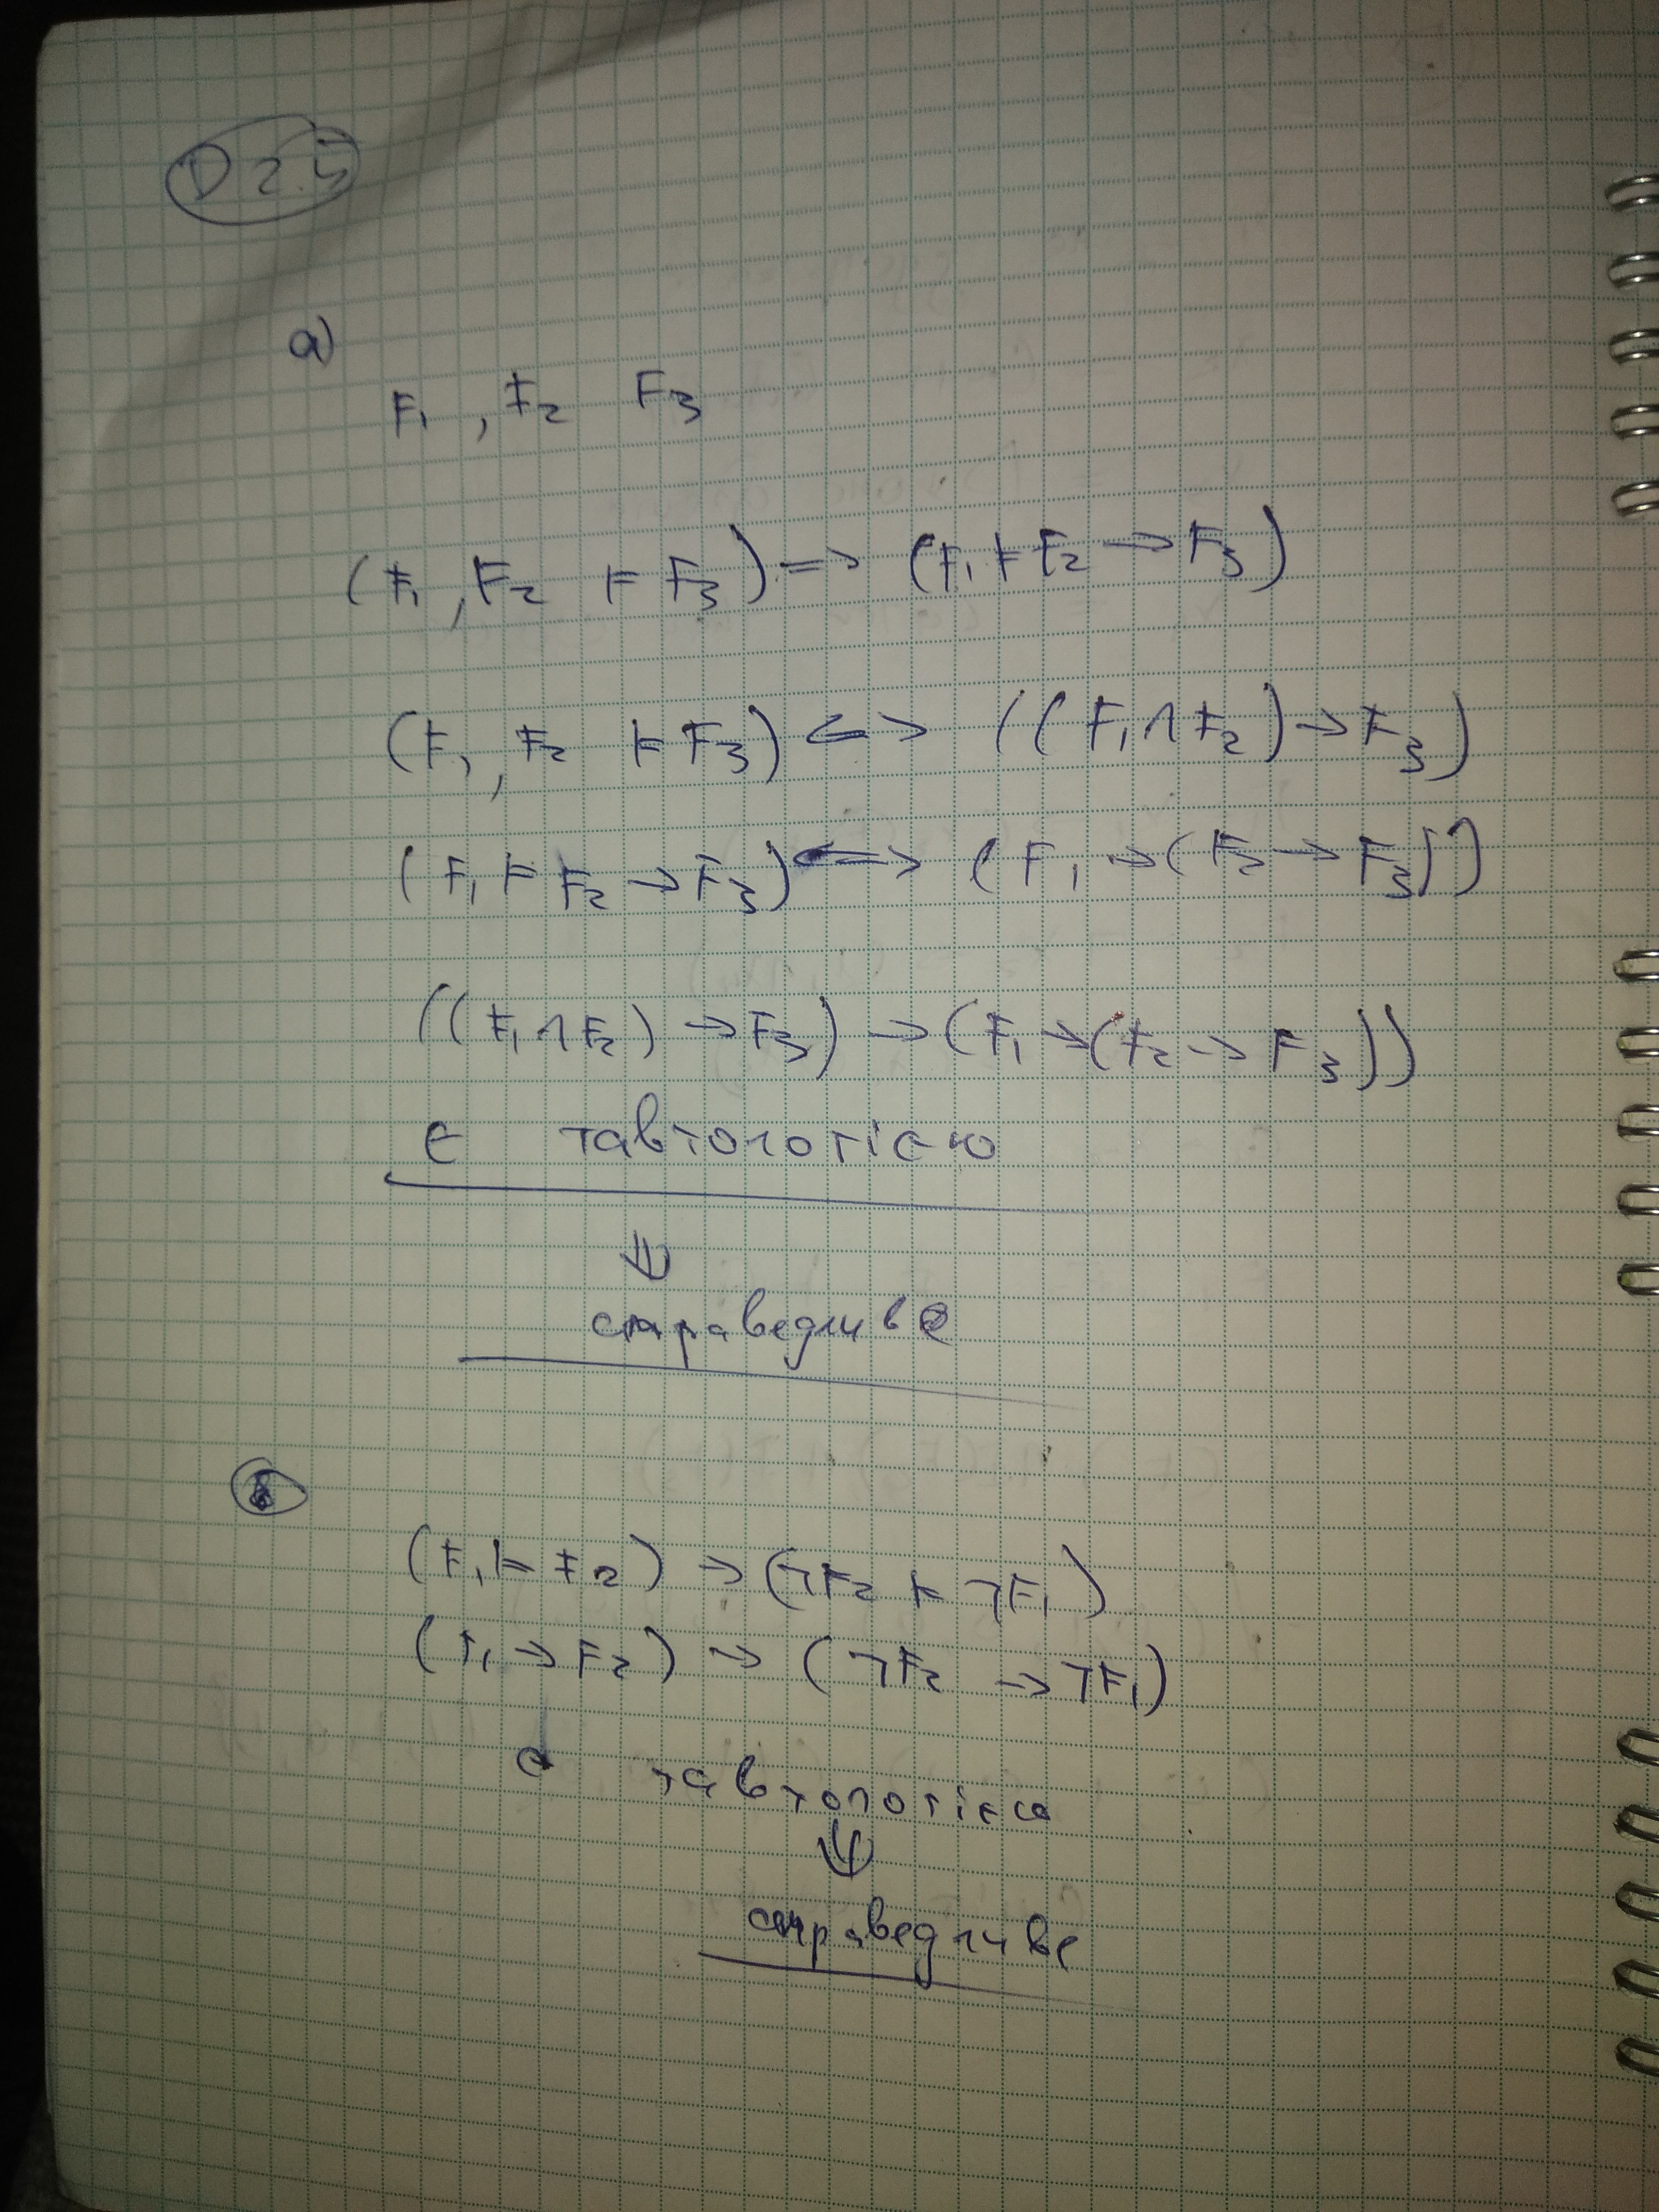 D 2.5
а)
F₁ , F₂ F₃
(F₁ , F₂ ⊨ F₃) => (F₁ ⊨ F₂ → F₃)
(F₁ , F₂ ⊨ F₃) <=> ((F₁ ∧ F₂) → F₃)
(F₁ ⊨ F₂ → F₃) <=> (F₁ → (F₂ → F₃))
((F₁ ∧ F₂) → F₃) → (F₁ → (F₂ → F₃))
є тавтологією
⇓
справедливе
(F₁ ⊨ F₂) → (¬F₂ ⊨ ¬F₁)
(F₁ → F₂) → (¬F₂ → ¬F₁)
є тавтологією
⇓
справедливе